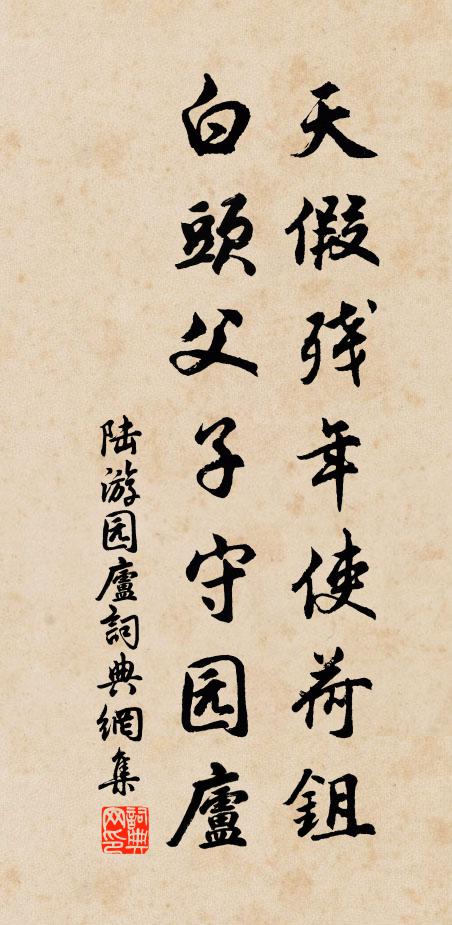 天假残年使荷鉏
白頭父子守园廬
陆游园廬詞典網集
詞典网印